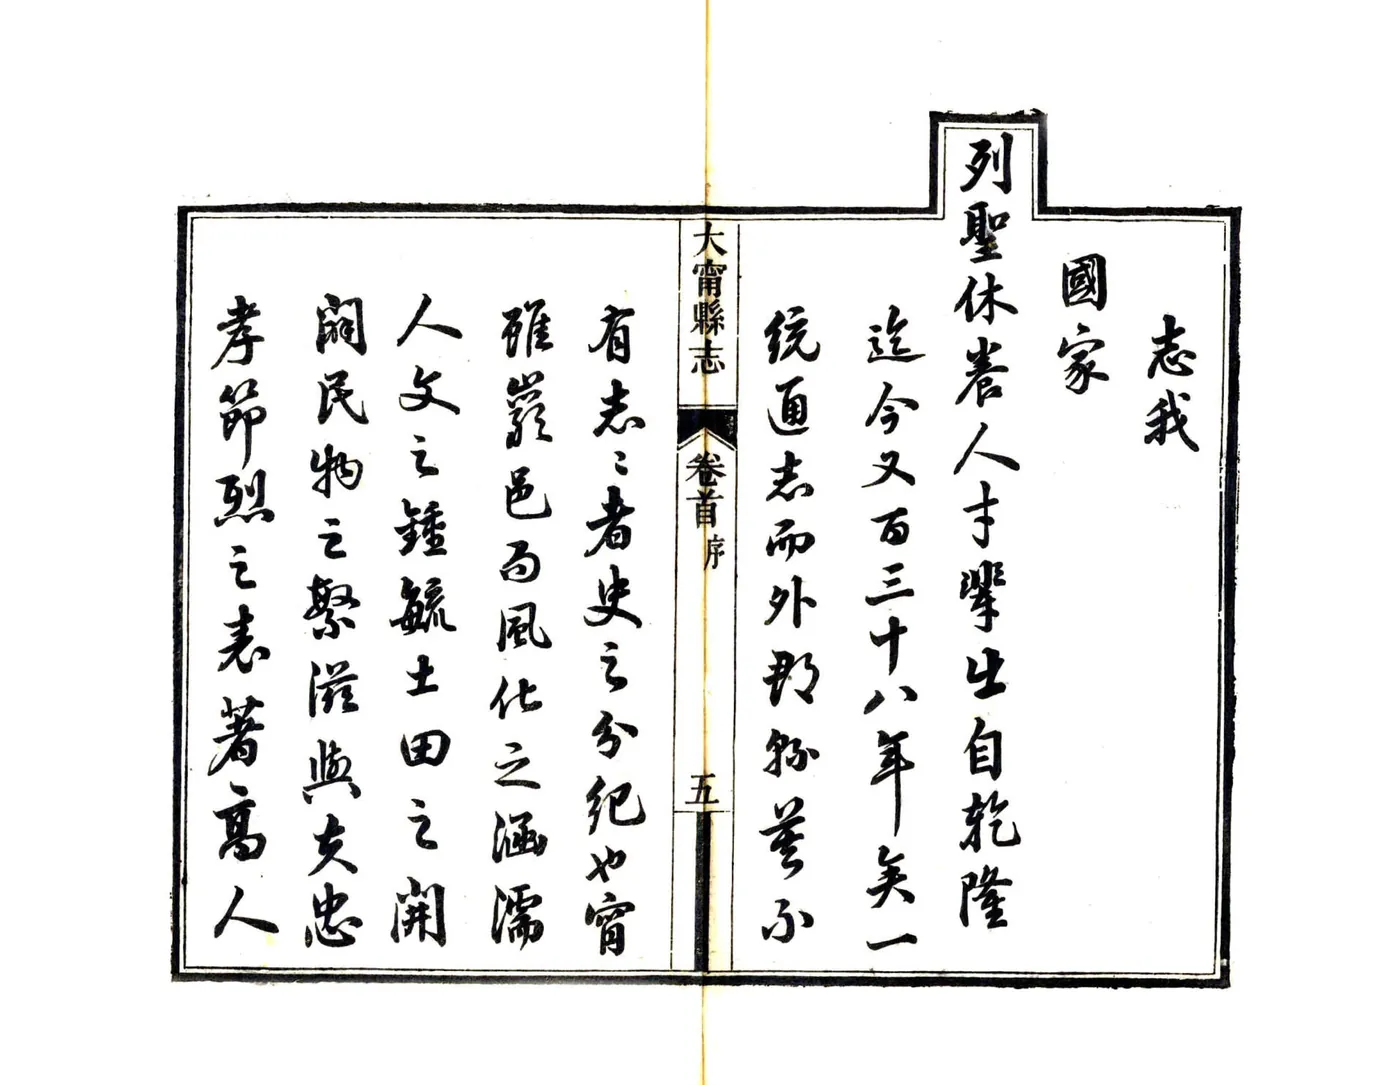 志我
國家
列聖休養人才輩出自乾隆
迄今又百三十八年矣一
統通志而外郡縣莫不
大甯縣志
卷首
序
五
有志〻者史之分紀也甯
雖巖邑而風化之涵濡
人文之鍾毓土田之開
闢民物之繁滋與夫忠
孝節烈之表著高人